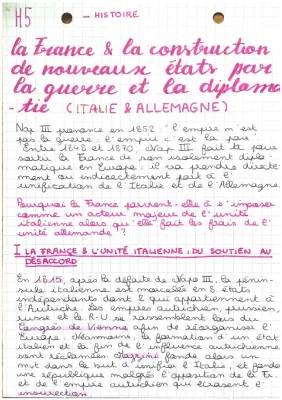 H5 - HISTOIRE
la France & la construction
de nouveaux états par
la guerre et la diploma
-tie (ITALIE & ALLEMAGNE)
Nap III prononce en 1852 "l'empire m'est
pas la guerre, l'empire c'est la paix".
Entre 1848 et 1870, Nap III fait tt pour
sortir la France de son isolement diplo-
matique en Europe : il va prendre directe-
ment ou indirectement part à l'
unification de l'Italie et de l'Allemagne.
Pourquoi la France parvient-elle à s'imposer
comme un acteur majeur de l'unité
italienne alors qu'elle fait les frais de l'
unité allemande ?
I LA FRANCE & L'UNITÉ ITALIENNE : DU SOUTIEN AU
DÉSACCORD
En 1815, après la défaite de Nap III, la pénin-
sule italienne est morcelée en 8 états
indépendants dont 2 qui appartiennent à
l'Autriche. Les empires autrichien, prussien,
russe et le R-U se rassemblent lors du
Congrès de Vienne afin de réorganiser l'
Europe. Néanmoins, la formation d'un état
italien et la fin de l'influence autrichienne
sont réclamées. Mazzini fonde alors un
mvt dans le but d'unifier l'Italie, et fonde
une république malgré l'opposition de la Fr
et de l'empire autrichien qui écrasent l'
insurrection